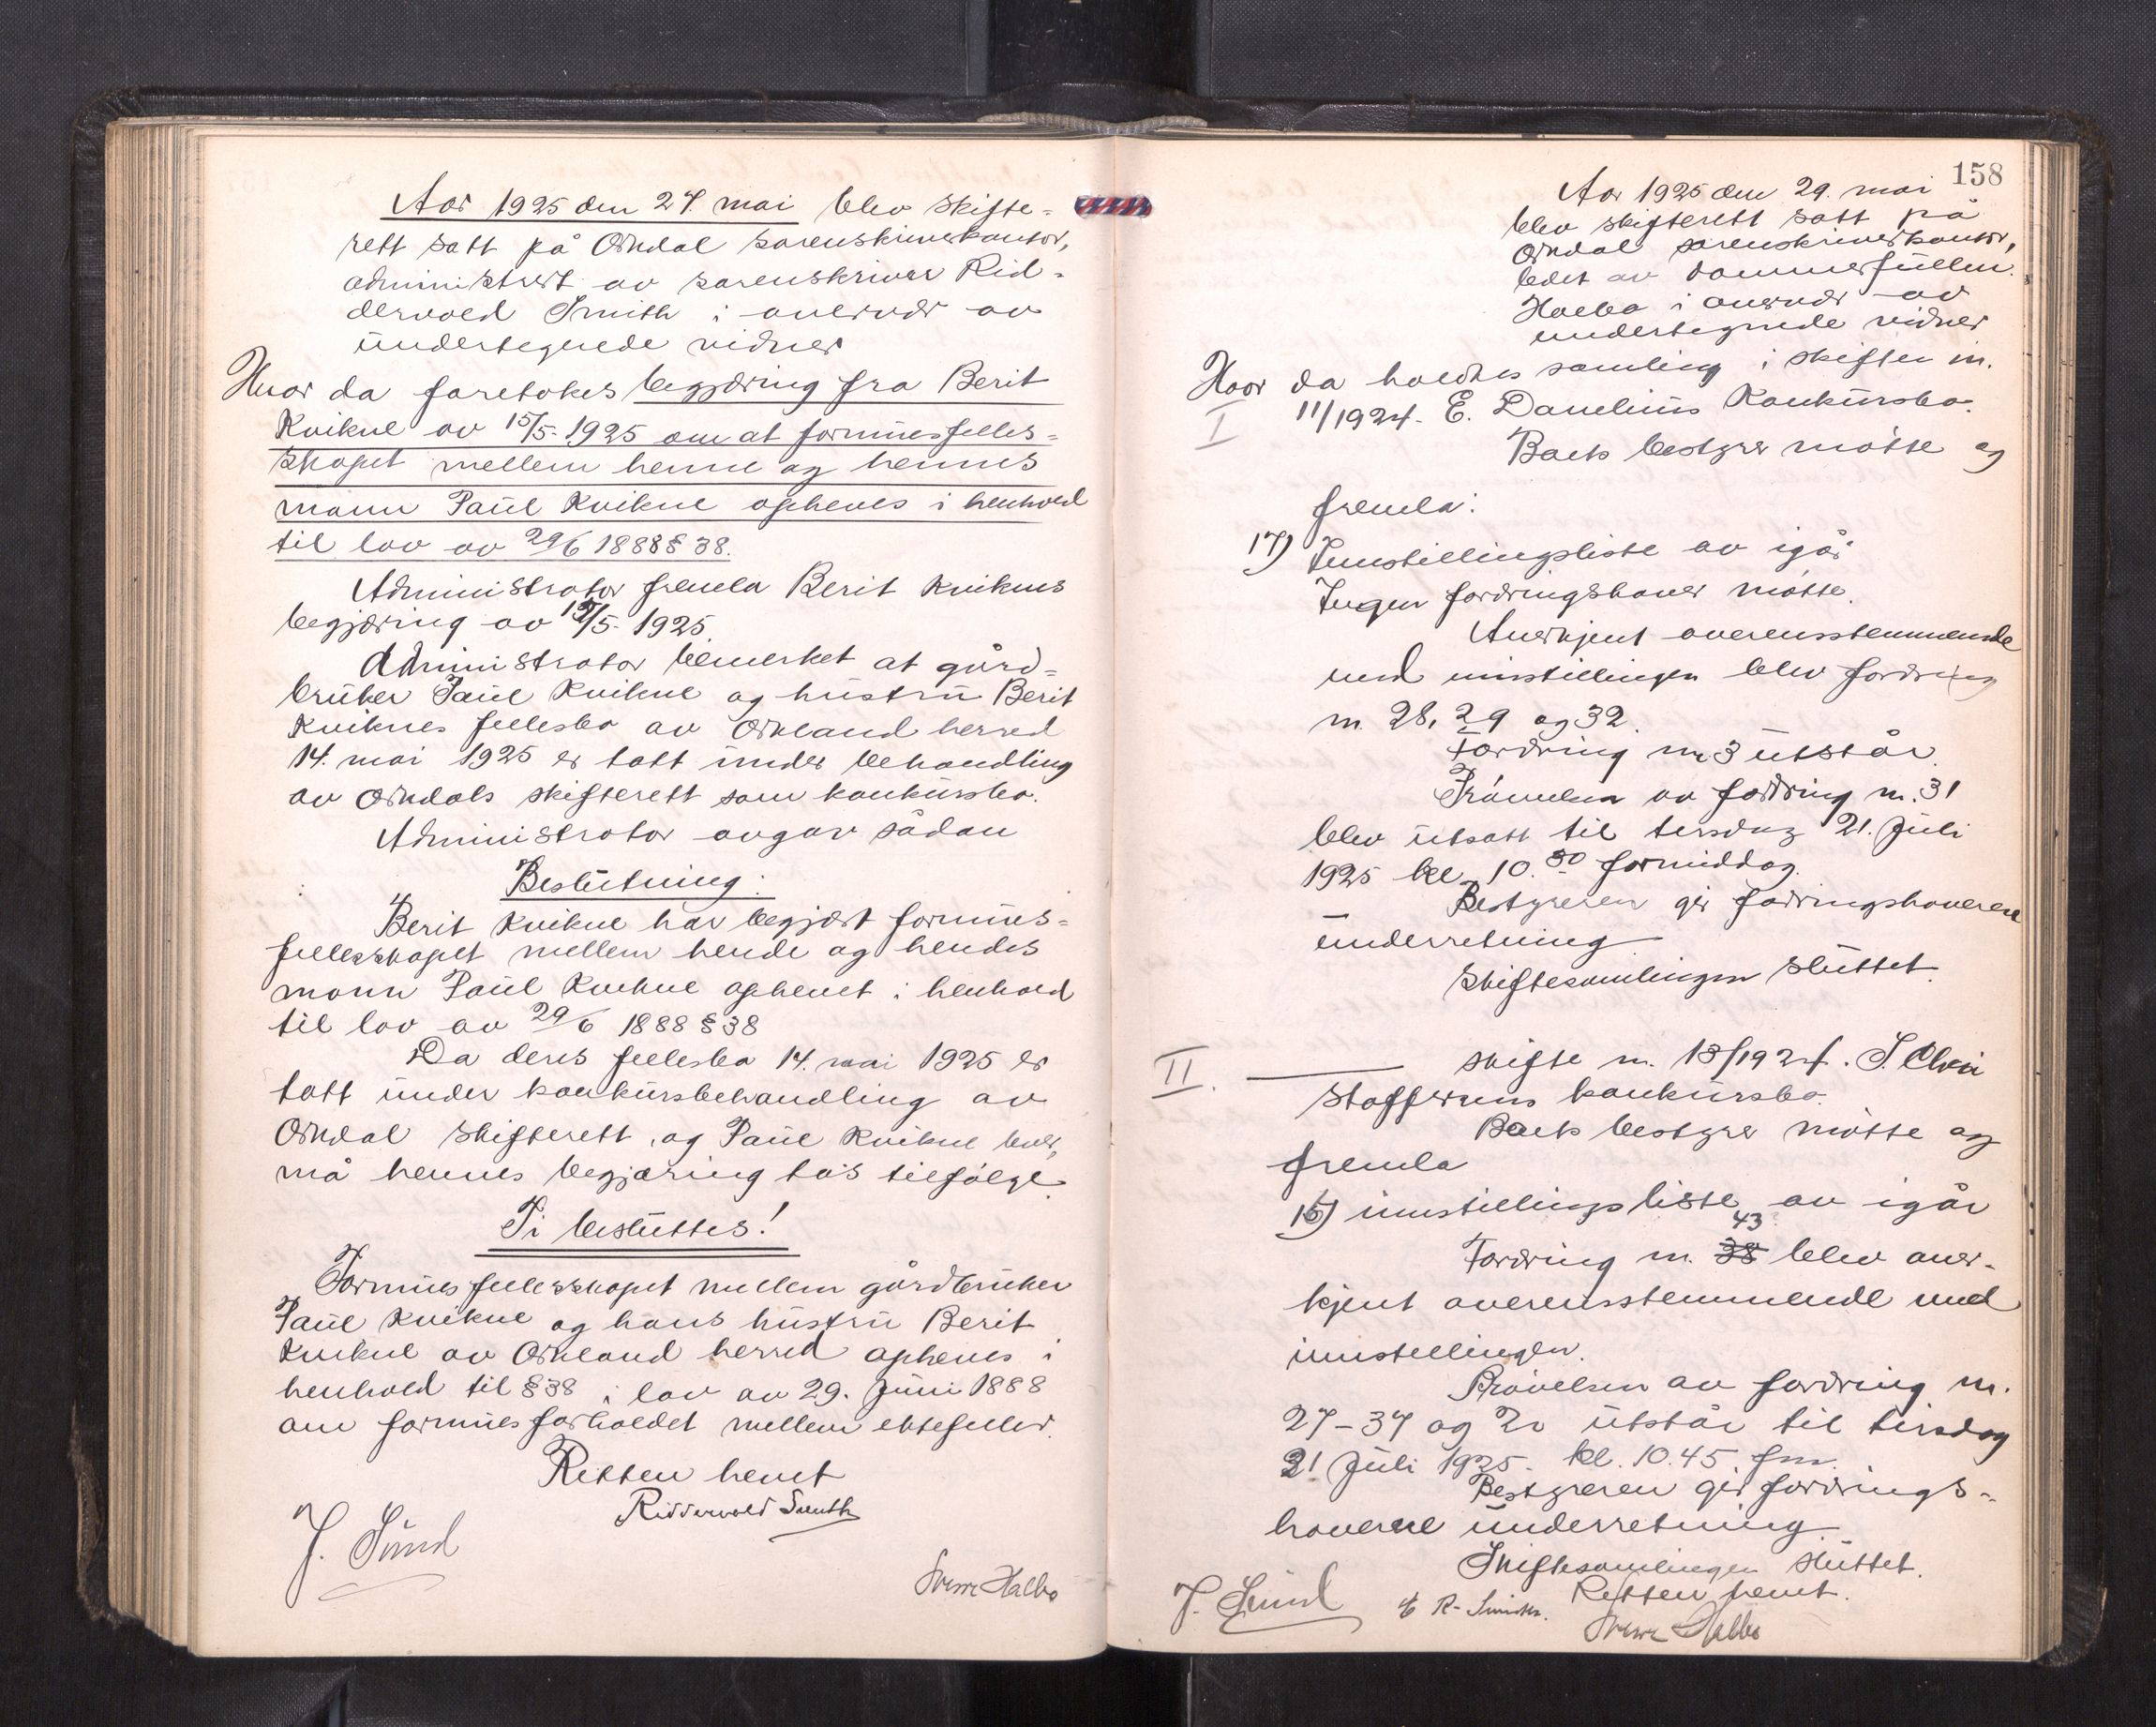 Aar 1925 den 27. mai blev skifte-
rett satt på Orkdal sorenskriverkontor,
administrert av sorenskriver Rid-
dervold Smith i overvær av
undertegnede vidner
Hvor da foretokes begjæring fra Berit
Kvikne av 15/5. 1925 om at formuesfelles-
skapet mellem henne og hennes
mann Paul Kvikne opheves i henhold
til lov av 29/6 1888 § 38.
Administrator fremla Berit Kviknes
begjæring av 15/5. 1925.
Administrator bemerket at gård-
bruker Paul Kvikne og hustru Berit
Kviknes fellesbo av Orkland herred
14. mai 1925 er tatt under behandling
av Orkdals skifterett som konkursbo.
Administrator avgav sådan
Beslutning:
Berit Kvikne har begjært formues-
fellesskapet mellem hende og hendes
mann Paul Kvikne ophevet i henhold
til lov av 29/6 1888 § 38
Da deres fellesbo 14. mai 1925 er
tatt under konkursbehandling av
Orkdal skifterett, og Paul Kvikne lever,
må hennes begjæring tas tilfølge.
Ti besluttes!
Formuesfellesskapet mellem gårdbruker
Paul Kvikne og hans hustru Berit
Kvikne av Orkland herred opheves i
henhold til § 38 i lov av 29. juni 1888
om formuesforholdet mellem ektefeller.
Retten hevet
Ridderwold Smith
J. Sund
Sverre Halbo
158
Aar 1925 den 29. mai
blev skifterett satt på
Orkdal sorenskriverkontor,
ledet av dommerfullm.
Halbo i overvær av
undertegnede vidner
Hvor da holdtes samling i skifte nr.
I 11/1924. E. Danelius Konkursbo.
Boets bestyrer møtte og
fremla:
17) Innstillingsliste av igår
Ingen fordringshaver møtte.
Anerkjent overensstemmende
med innstillingen blev fordring
nr. 28, 29 og 32.
Fordring nr. 3 utstår.
Prøvelsen av fordring nr. 31
blev utsatt til tirsdag 21. juli
1925 kl. 10.30 formiddag.
Bestyreren gir fordringshaverene
underretning
Skiftesamlingen sluttet.
II. skifte nr. 13/1924. S.
Stoffersens konkursbo.
Boets bestyrer møtte og
fremla
16) innstillingsliste av igår
43
Fordring nr. 38 blev aner-
kjent overensstemmende med
innstillingen.
Prøvelsen av fordring nr.
27-37 og 20 utstår til tirsdag
21 juli 1925. kl. 10.45. fm.
Bestyreren gir fordrings-
haverne underretning.
Skiftesamlingen sluttet.
Retten hevet.
J. Sund R. Smith.
Sverre Halbo